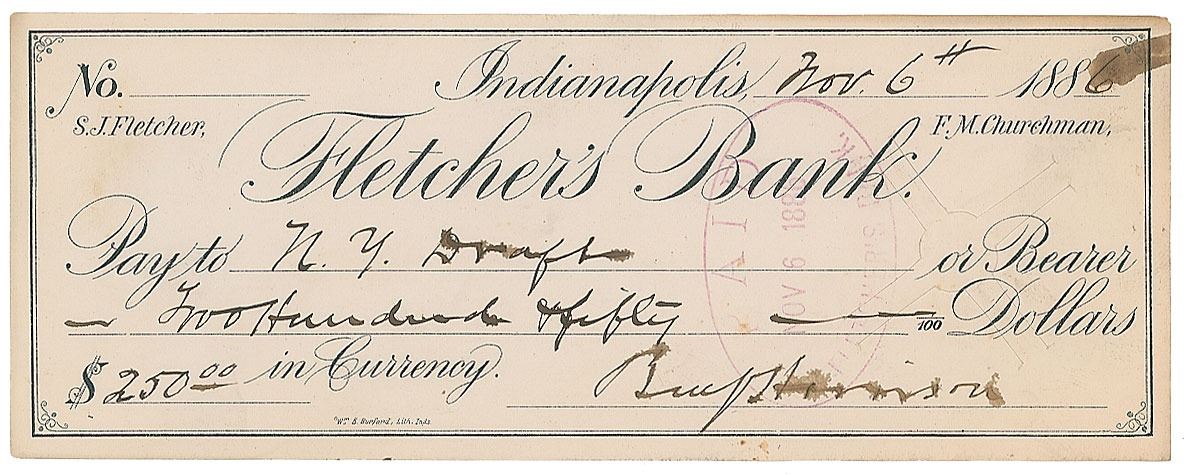 No. Indianapolis, Nov. 6th 1886
S.J. Fletcher, F.M. Churchman,
Fletcher's Bank.
Pay to N. Y. Draft or Bearer
Two Hundred & fifty 100 Dollars
$250.00 in Currency. Benj Harrison
Wm. B. Burford, Lith. Inds.
PAID
NOV 6 1886
FLETCHER'S BANK.